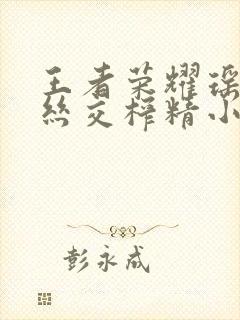 王者荣耀瑶
丝交榨精小
彭永成